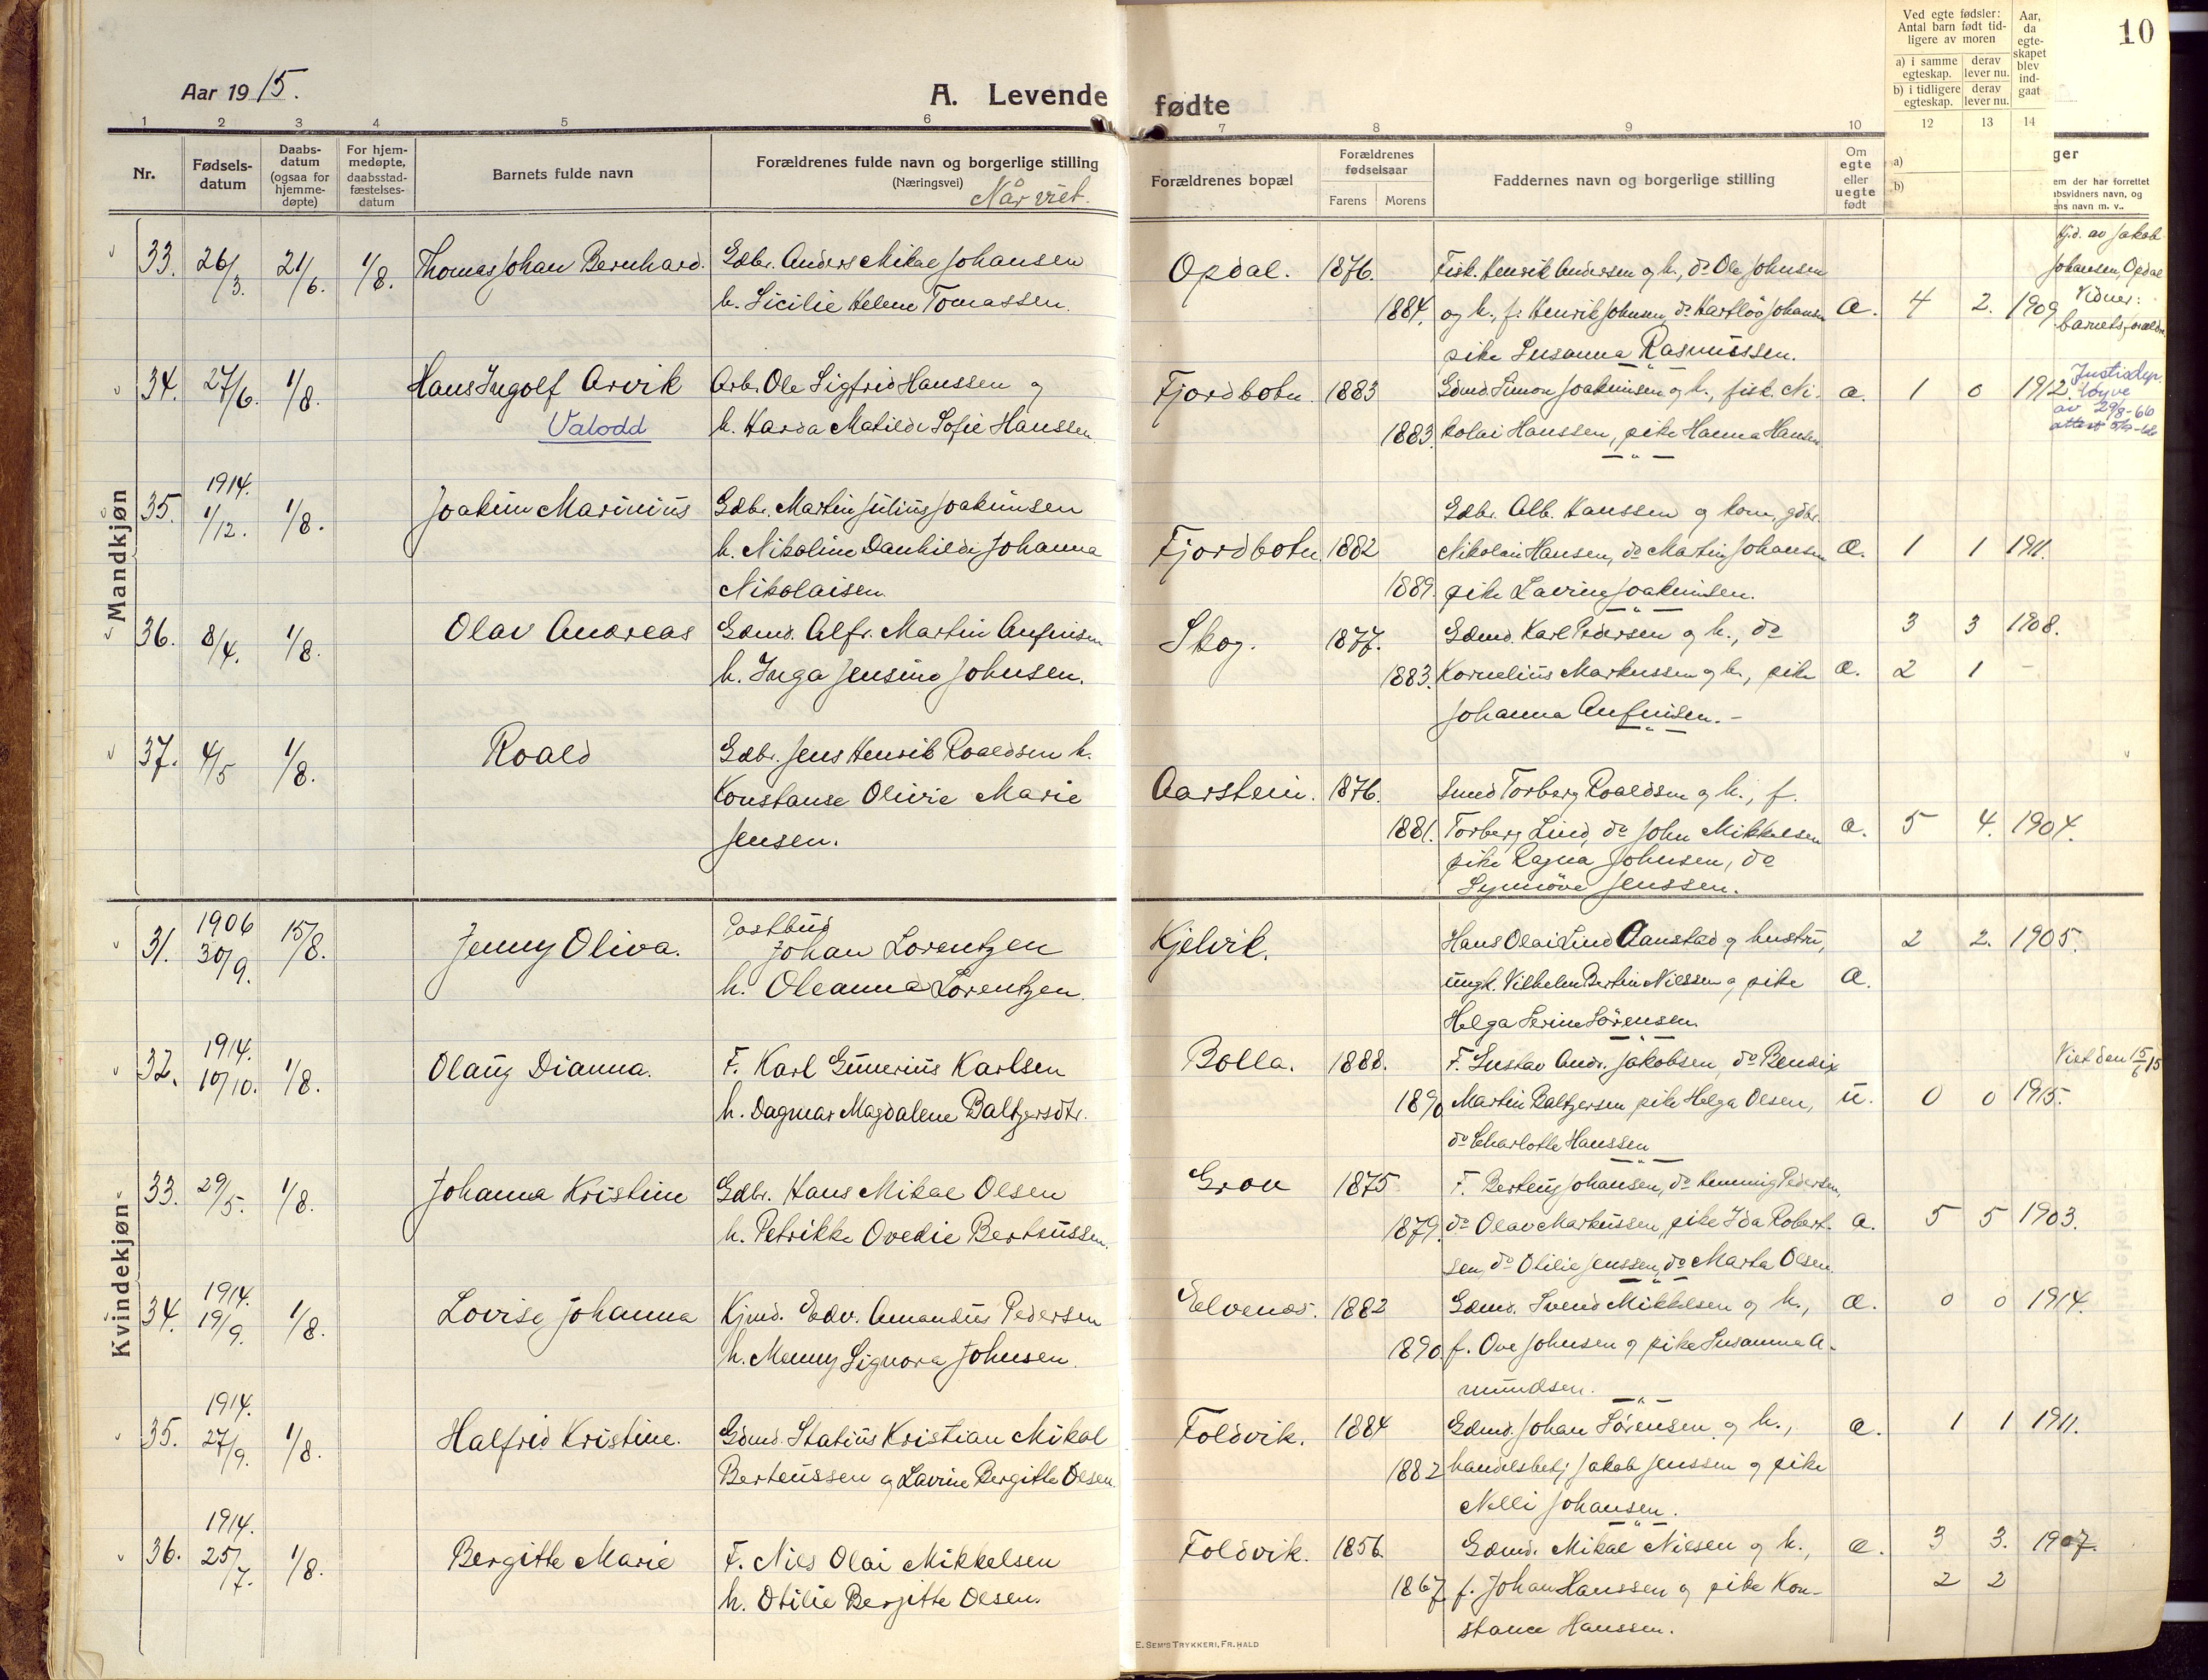 Aar 1915.
A. Levende fødte
10
Ved egte fødsler:
Antal barn født tid-
ligere av moren
a) i samme egteskap.
derav lever nu.
b) i tidligere egteskap.
derav lever nu.
Aar, da egte-skapet blev ind-gaat
1 2 3 4 5 6 7 8 9 10 12 13 14
Nr.
Fødsels-datum
Daabs-datum (ogsaa for hjemme-døpte)
For hjem-medøpte, daabsstad-fæstelses-datum
Barnets fulde navn
Forældrenes fulde navn og borgerlige stilling
(Næringsvei)
Når viet.
Forældrenes bopæl
Forældrenes fødselsaar
Farens Morens
Faddernes navn og borgerlige stilling
Om egte eller uegte født
a)
b)
ger
em der har forrettet
absvidners navn, og
ens navn m. v..
Mandkjøn
33. 26/3. 21/6. 1/8. Thomas Johan Bernhard. Gdbr. Anders Mikal Johansen
h. Sicilie Helene Tomassen.
Opdal. 1876. 1884.
Fisk. Henrik Andersen og h., do Ole Johnsen
og h., f. Henrik Johnsen, do Hartløv Johansen
pike Susanna Rasmussen.
æ. 4 2. 1909
Hjd. av Jakob
Johansen, Opdal
Vidner:
barnets forældre
34. 27/6. 1/8. Hans Ingolf Arvik
Valodd
Arb. Ole Sigfrid Hanssen og
h. Harda Matilde Sofie Hanssen.
Fjordbotn 1883 1883.
Gdmd. Simon Joakimsen og h., fisk. Ni-
kolai Hanssen, pike Hanna Hansen
æ. 1 0 1912.
Justisdep.
løyve
av 29/8-66
35. 1914. 1/12. 1/8. Joakim Marinius
Gdbr. Martin Julius Joakimsen
h. Nikoline Danhilde Johanna
Nikolaisen
Fjordbotn 1882 1889.
Gdbr. Alb. Hanssen og kone, gdbr.
Nikolai Hansen, do Martin Johansen
pike Lavine Joakimsen.
æ. 1 1 1911.
36. 8/4. 1/8. Olav Andreas
Gdmd. Alfr. Martin Anfinsen
h. Inga Jensine Johnsen.
Skog. 1877. 1883.
Gdmd. Karl Pedersen og h., do
Kornelius Markussen og h., pike
Johanna Anfinsen. -
æ. 3 3 1908.
2 1 -
37. 4/5 1/8. Roald
Gdbr. Jens Henrik Roaldsen h.
Konstanse Olivie Marie
Jensen.
Aarstein. 1876. 1881.
Smed Torberg Roaldsen og h., f.
Torberg Lind, do John Mikkelsen
pike Ragna Johnsen, do
Synnøve Jenssen.
æ. 5 4. 1904.
Kvindekjøn
31. 1906 30/9. 15/8. Jenny Oliva.
Postbud
Johan Lorentzen
h. Oleanna Lorentzen.
Kjelvik.
Hans Olai Lind Aanstad og hustru,
ungk. Vilhelm Bertin Nilssen og pike
Helga Serine Sørensen.
æ. 2 2. 1905.
32. 1914. 10/10. 1/8. Olaug Dianna.
F. Karl Gunerius Karlsen
h. Dagmar Magdalene Baltzersdtr.
Bolla. 1888. 1890
F. Gustav Andr. Jakobsen, do Bendix
Martin Baltzersen, pike Helga Olsen,
do Charlotte Hanssen
u. 0 0 1915.
Viet den 15/6 15
33. 29/5. 1/8. Johanna Kristine
Gdbr. Hans Mikal Olsen
h. Petrikke Ovedie Berteussen.
Grov 1875 1879.
F. Berteus Johansen, do Hemmig Pedersen,
do Olav Markussen, pike Ida Robert-
sen, do Otilie Jenssen, do Marta Olsen.
æ. 5 5 1903.
34. 1914. 19/9. 1/8. Lovise Johanna
Kjmd. Edv. Amandus Pedersen
h. Menny Signora Johnsen.
Elvenes. 1882 1890.
Gdmd. Svend Mikkelsen og h.,
f. Ove Johnsen og pike Susanna A-
mundsen.
æ. 0 0 1914.
35. 1914. 27/9. 1/8. Halfrid Kristine.
Gdmd. Statius Kristian Mikal
Berteussen og Lavine Bergitte Olsen.
Foldvik. 1884 1882
Gdmd. Johan Sørensen og h.,
handelsbetj. Jakob Jenssen og pike
Nelli Johansen.
æ. 1 1 1911.
36. 1914. 25/7. 1/8. Bergitte Marie
F. Nils Olai Mikkelsen
h. Otilie Bergitte Olsen.
Foldvik. 1856. 1867
Gdmd. Mikal Nilsen og h.,
f. Johan Hanssen og pike Kon-
stance Hanssen.
æ. 3 3. 1907.
2 2
E. SEM'S TRYKKERI, FR.HALD